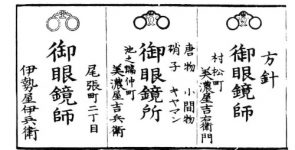 方針
御眼鏡師
村松町
美濃屋吉右衛門
唐物 小間物
硝子 キヤマン
御眼鏡所
池之端仲町
美濃屋吉兵衛
御眼鏡師
尾張町二丁目
伊勢屋伊兵衛